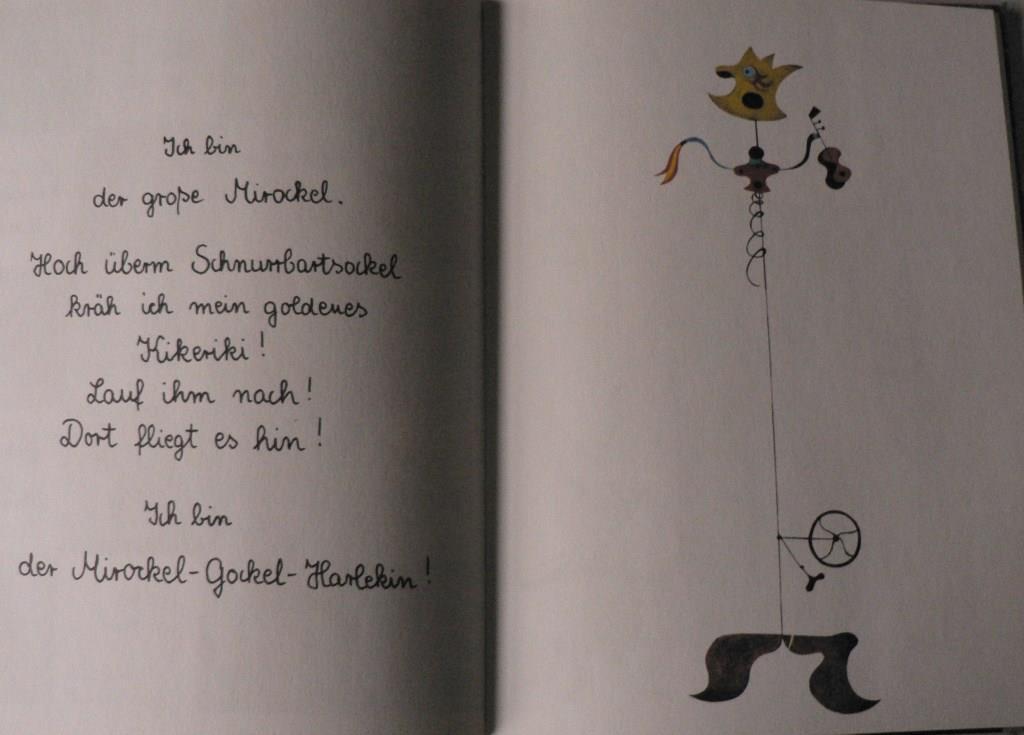 Ich bin
der große Mirockel.
Hoch überm Schnurrbartsockel
kräh ich mein goldenes
Kikeriki!
Lauf ihm nach!
Dort fliegt es hin!
Ich bin
der Mirockel-Gockel-Harlekin!